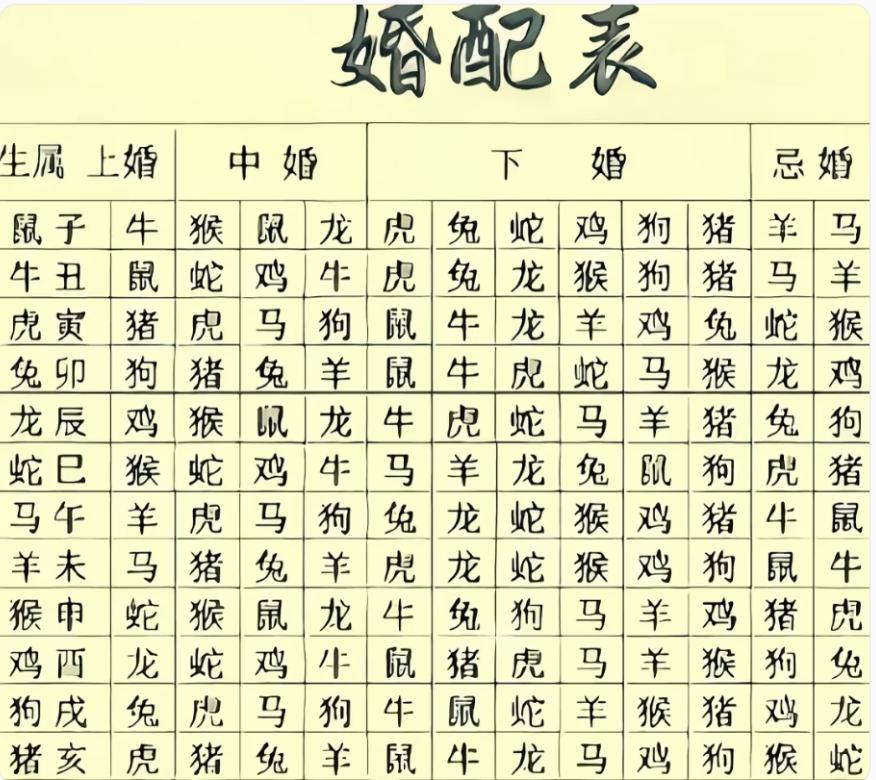 婚配表
生属 上婚 中婚 下婚 忌婚
鼠子 牛 猴 鼠 龙 虎 兔 蛇 鸡 狗 猪 羊 马
牛丑 鼠 蛇 鸡 牛 虎 兔 龙 猴 狗 猪 马 羊
虎寅 猪 虎 马 狗 鼠 牛 龙 羊 鸡 兔 蛇 猴
兔卯 狗 猪 兔 羊 鼠 牛 虎 蛇 马 猴 龙 鸡
龙辰 鸡 猴 鼠 龙 牛 虎 蛇 马 羊 猪 兔 狗
蛇巳 猴 蛇 鸡 牛 马 羊 龙 兔 鼠 狗 虎 猪
马午 羊 虎 马 狗 兔 龙 蛇 猴 鸡 猪 牛 鼠
羊未 马 猪 兔 羊 虎 龙 蛇 猴 鸡 狗 鼠 牛
猴申 蛇 猴 鼠 龙 牛 兔 狗 马 羊 鸡 猪 虎
鸡酉 龙 蛇 鸡 牛 鼠 猪 虎 马 羊 猴 狗 兔
狗戌 兔 虎 马 狗 牛 鼠 蛇 羊 猴 猪 鸡 龙
猪亥 虎 猪 兔 羊 鼠 牛 龙 马 鸡 狗 猴 蛇